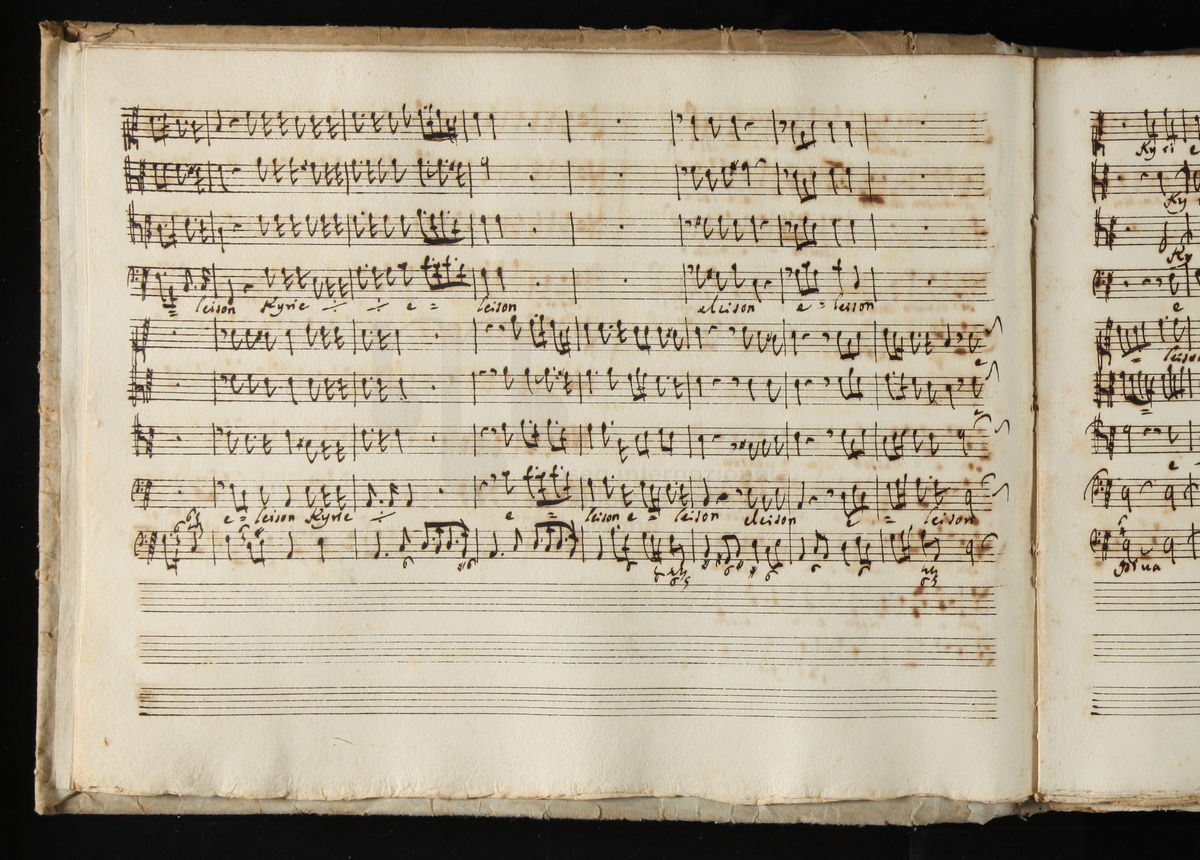 = leison Kyrie ÷ ÷ e = leison eleison e = leison
e = leison Kyrie ÷ e = leison e = leison eleison e = leison
Kyri e
Ky
Ky
e
= leison
e